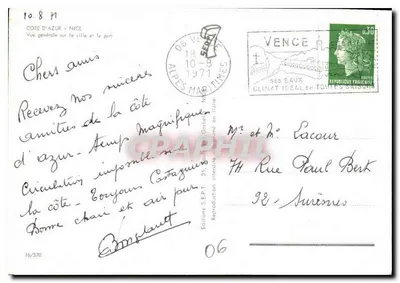 10.8.71
COTE D'AZUR - NICE
Vue générale sur la ville et le port
Chers amis
Recevez nos sincères
amitiés de la côte
d'azur - temps magnifique
Circulation impossible sur
la côte - Toujours
Bonne chair et air pur
06 VENCE
18 H
10-8
1971
ALPES MARITIMES
VENCE
SES EAUX
CLIMAT IDÉAL en TOUTES SAISONS
0,30
REPUBLIQUE FRANÇAISE
Mr et Mme Lacour
74 Rue Paul Bert
92 - Suresnes
06
Editions S.E.P.T.